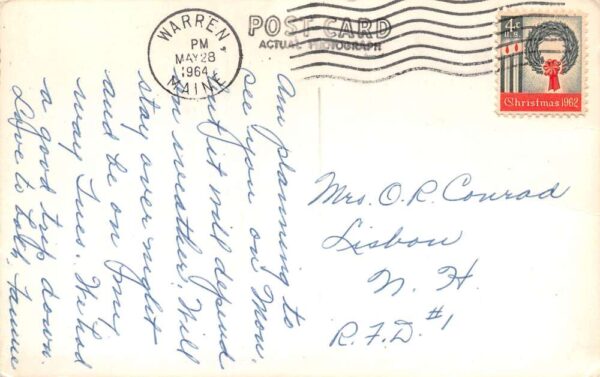 WARREN,
PM
MAY 28
1964
MAINE
POST CARD
ACTUAL PHOTOGRAPH
4c
U.S.
Christmas 1962
Am planning to
see you on Mon.
but it will depend
on weather. Will
stay over night
and be on my
way Tues. We had
a good trip down.
Love to both, Fannie
Mrs. O. R. Conrad
Lisbon
N. H.
R.F.D. #1